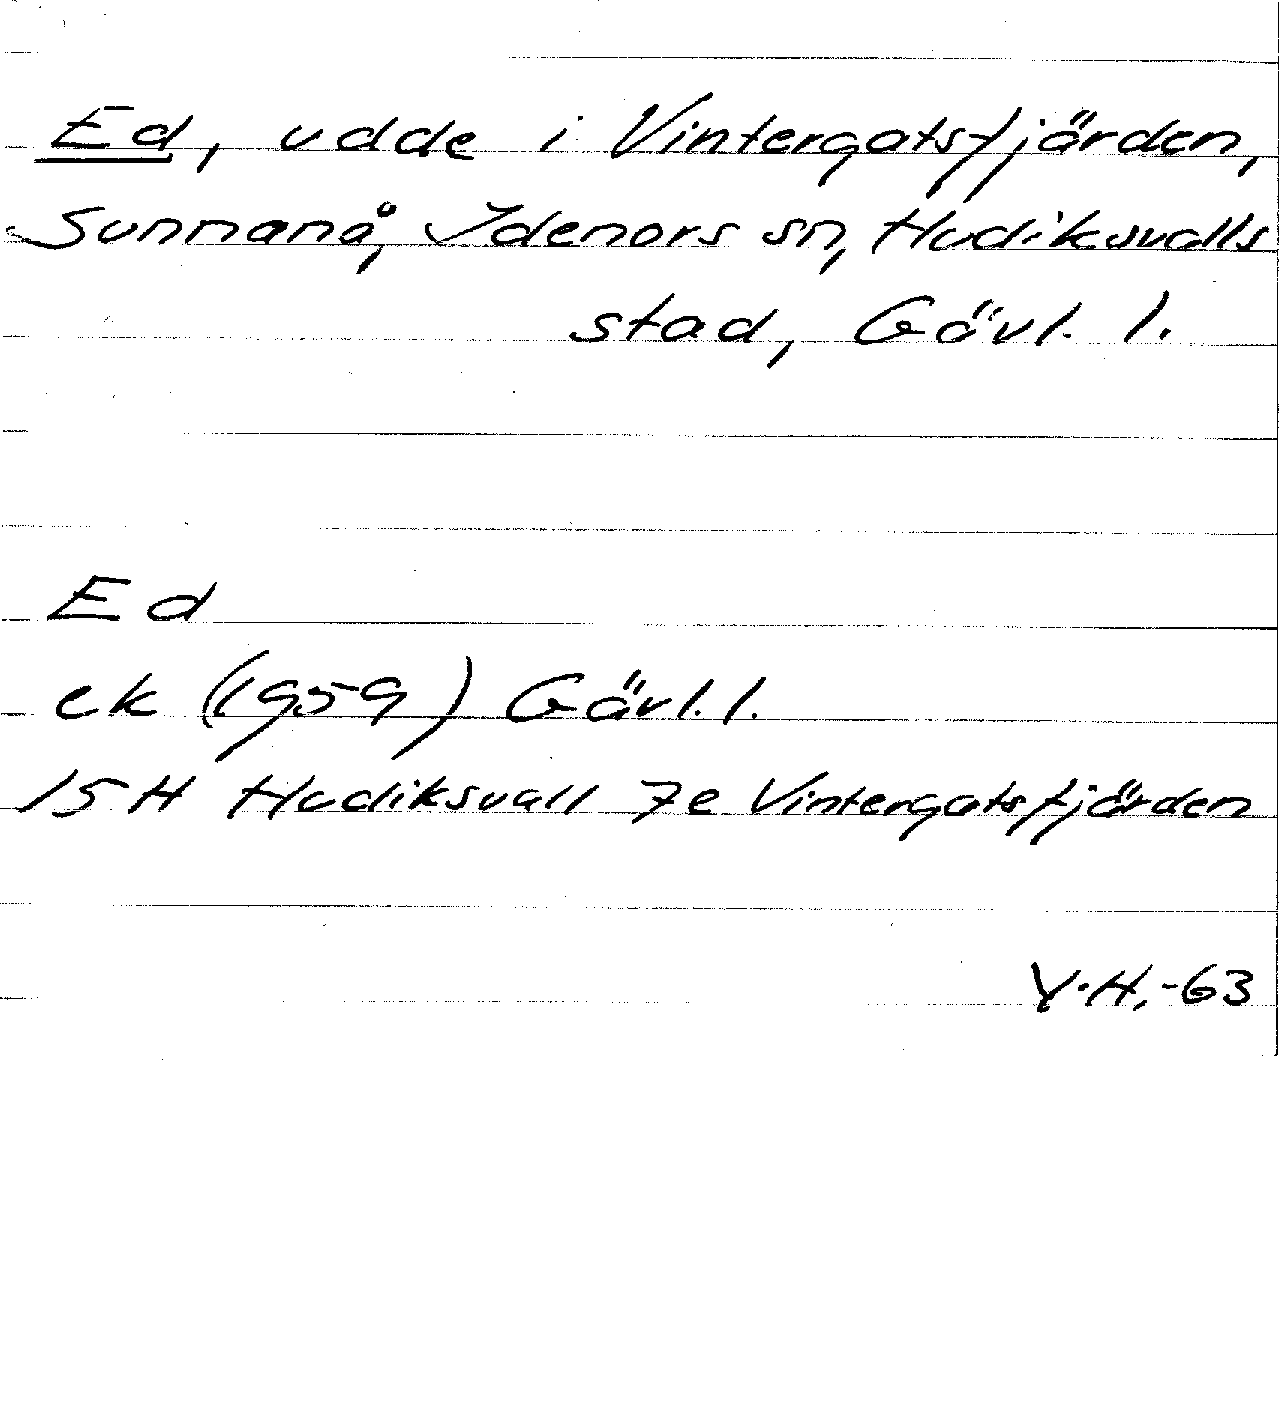 Ed, udde i Vintergatsfjärden,
Sunnanå, Idenors sn, Hudiksvalls
stad, Gävl. l.
Ed
ek (1959) Gävl. l.
15H Hudiksvall 7e Vintergatsfjärden
Y.H.,-63